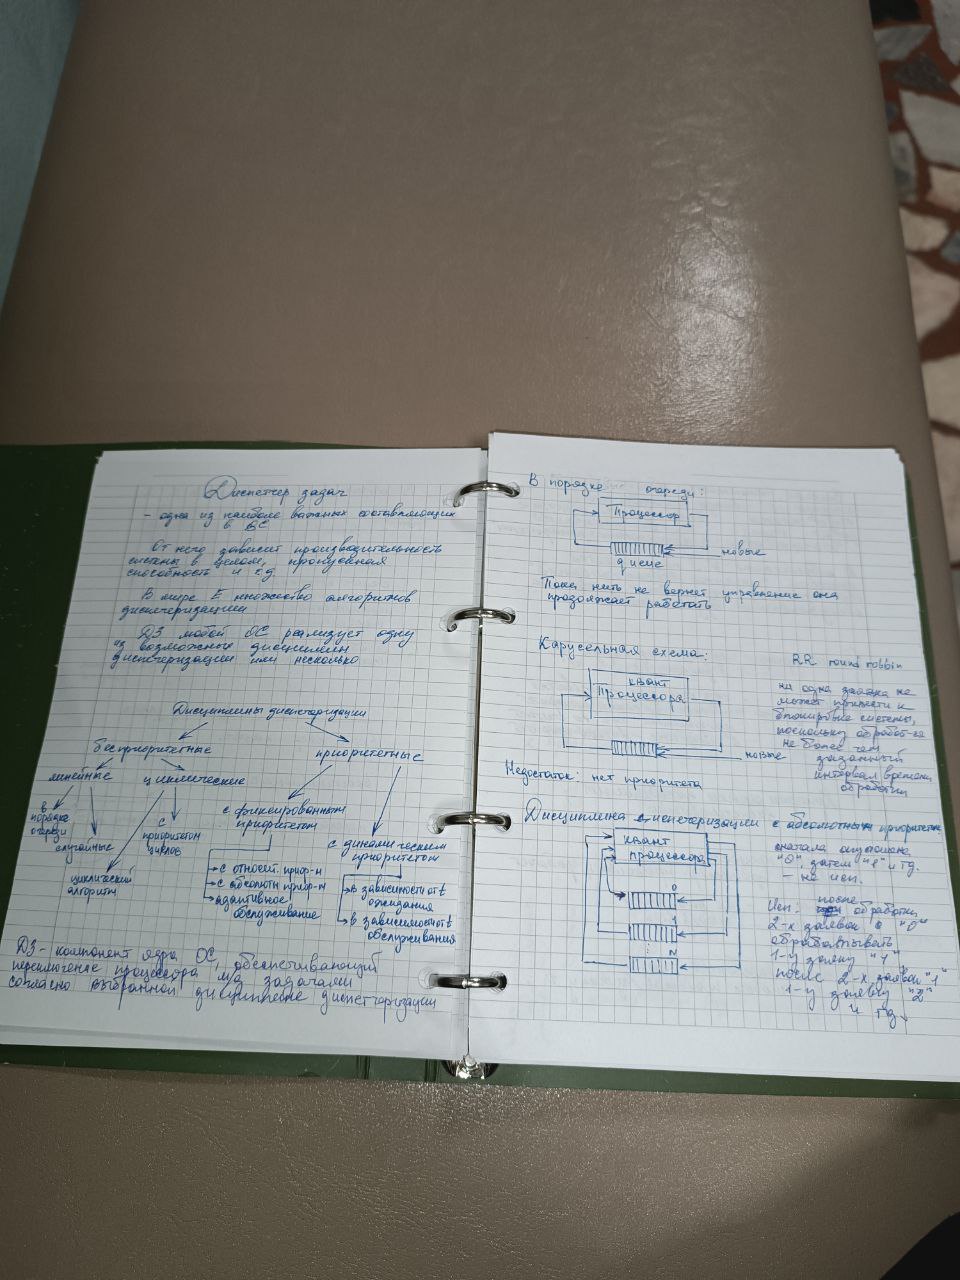 Диспетчер задач
- одна из наиболее важных составляющих
в ВС
От него зависит производительность
системы в целом, пропускная
способность и т.д.
В мире Е множество алгоритмов
диспетчеризации
ДЗ любой ОС реализует одну
из возможных дисциплин
диспетчеризации или несколько
Дисциплины диспетчеризации
бесприоритетные
приоритетные
линейные
циклические
в порядке очереди
случайные
циклический
алгоритм
с
приоритетом
циклов
с фиксированным
приоритетом
с динамическим
приоритетом
с относит. приор-м
с абсолютн приор-м
адаптивное
обслуживание
в зависимости от t
ожидания
в зависимости от t
обслуживания
ДЗ - компонент ядра ОС, обеспечивающий
переключение процессора м/д задачами
согласно выбранной дисциплине диспетчеризации
В порядке очереди:
Процессор
новые
Пока нить не вернет управление она
продолжает работать
Карусельная схема:
RR round robbin
квант
Процессора
новые
ни одна заявка не
может привести к
блокировке системы,
поскольку обработ-ся
не более чем
заданный
интервал времени
обработки
Недостаток: нет приоритета
Дисциплина диспетчеризации с абсолютным приоритетом
квант
процессора
0
1
N
сначала
"0", затем "1" и тд.
- не исп.
Исп: после обработки
2-х заявок "0"
обрабатывать
1-у заявку "1"
после 2-х заявок "1"
1-у заявку "2"
и тд